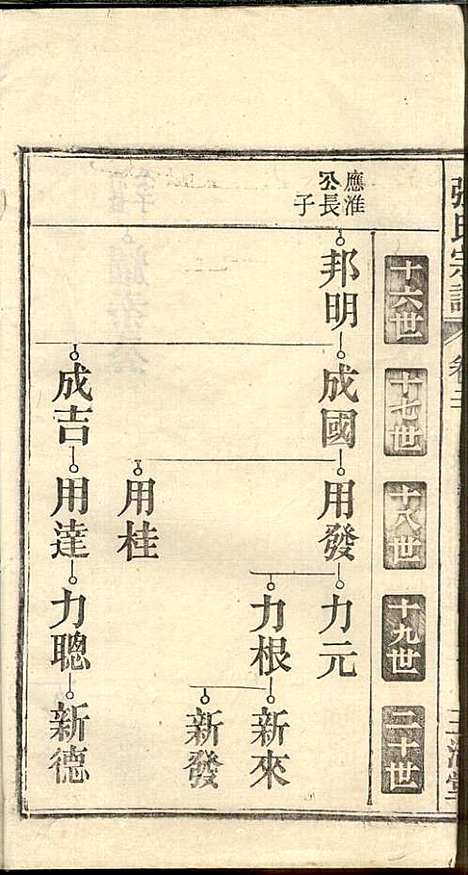 張氏宗譜
卷三
十六世
十七世
十八世
十九世
二十世
應淮
公長
子
邦明
成國
用發
力元
力根
新來
新發
用桂
成吉
用達
力聰
新德